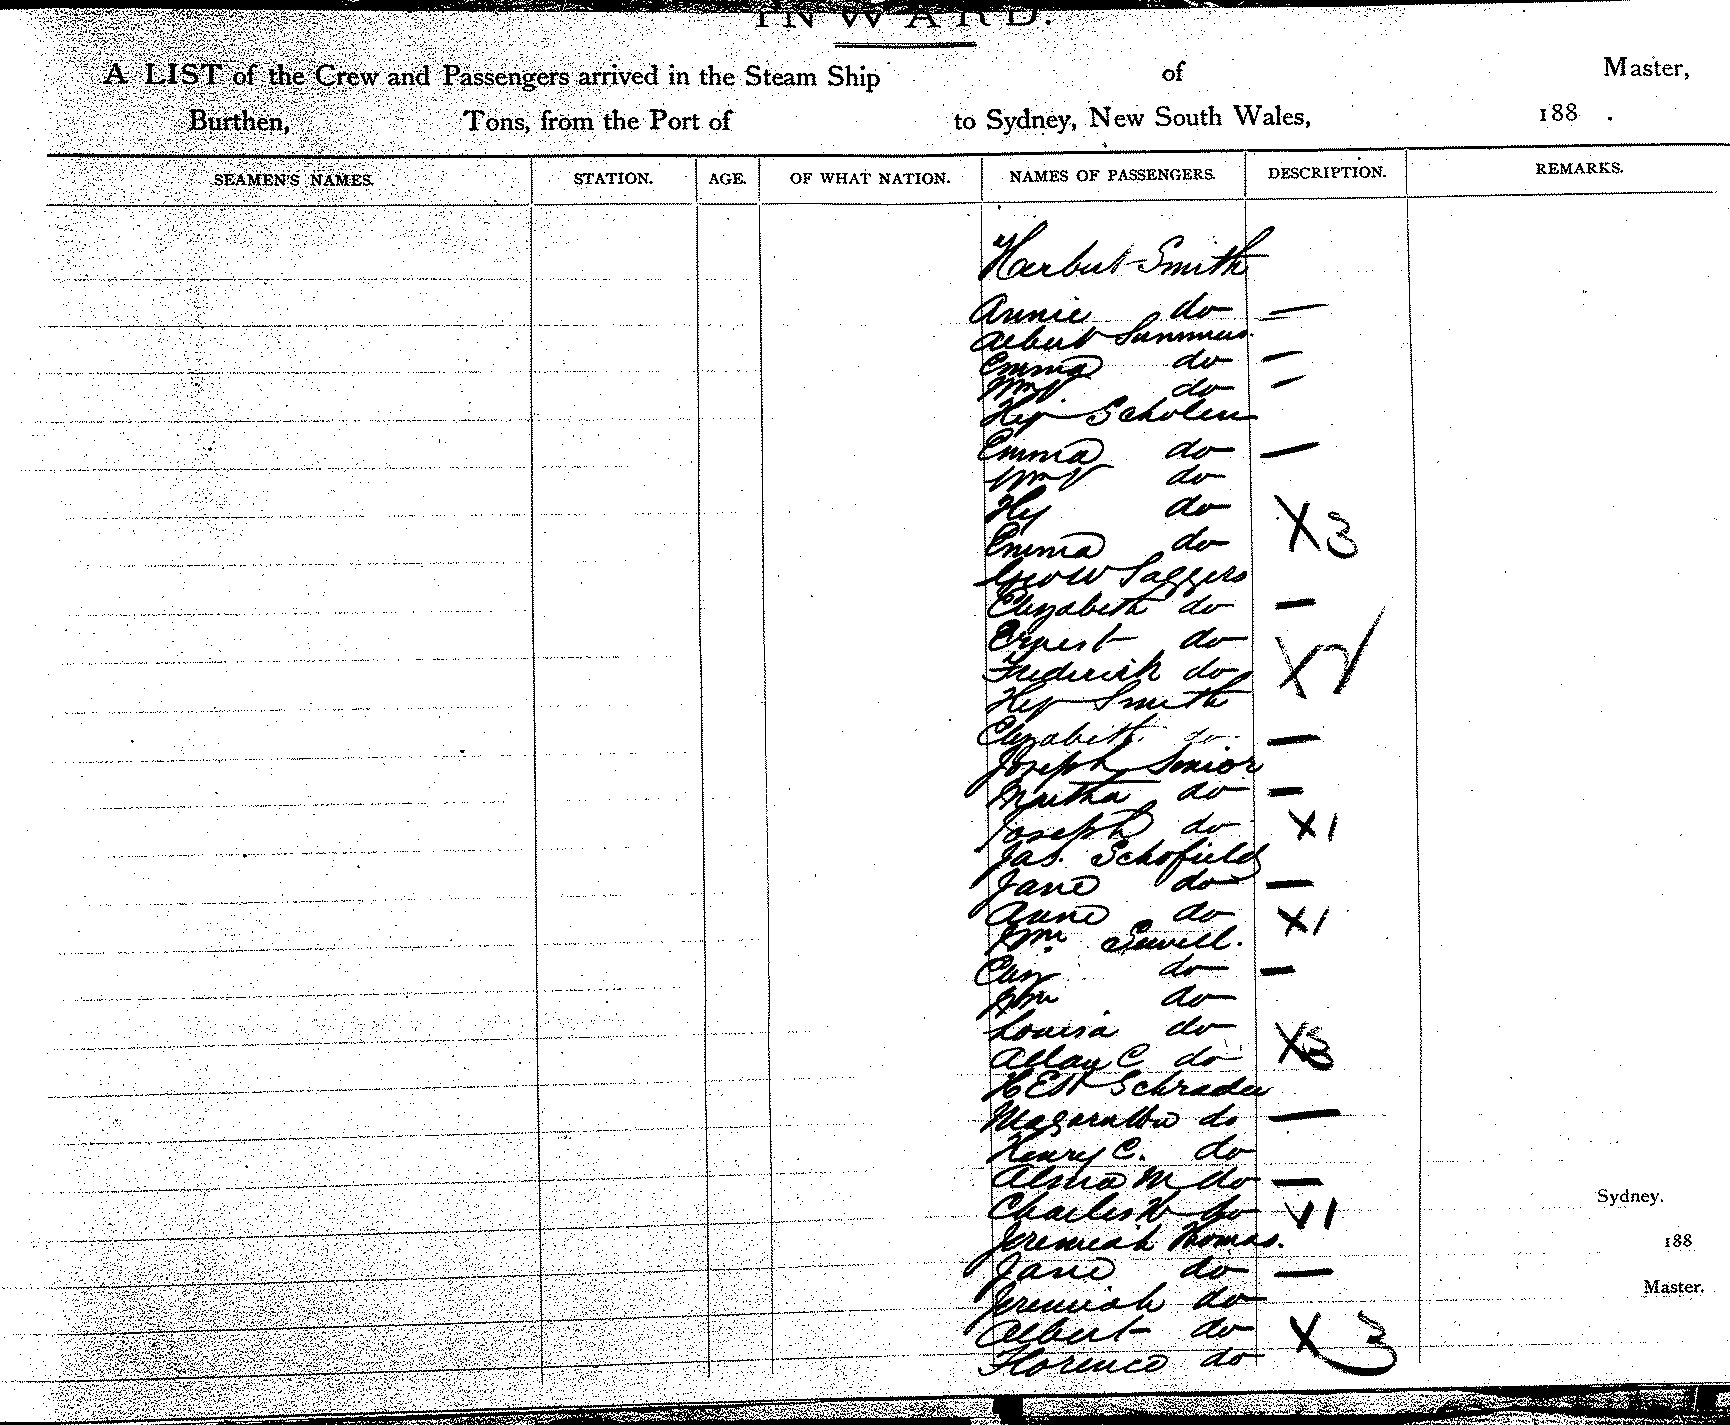 INWARD.
A LIST of the Crew and Passengers arrived in the Steam Ship of Master,
Burthen, Tons, from the Port of to Sydney, New South Wales, 188 .
SEAMEN'S NAMES. STATION. AGE. OF WHAT NATION. NAMES OF PASSENGERS. DESCRIPTION. REMARKS.
Herbert Smith
Annie do —
Albert Summers
Emma do —
Wm do —
Hy Scholes
Emma do —
Wm do
Hy do X3
Emma do
Geo W Saggers
Elizabeth do —
Ernest do
Frederick do X2/
Hy Smith
Elizabeth do —
Joseph Senior
Martha do —
Joseph do X1
Jas. Schofield
Jane do —
Anne do X1
Wm Sewell.
Eliz do —
Wm do
Louisa do X3
Allan C do
Schrader
do —
Henry C. do
Alma M do —
Charles W do V1
Jeremiah Thomas.
Jane do —
Jeremiah do
Albert do X3
Florence do
Sydney.
188
Master.